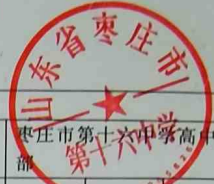 山东省枣庄市
第十六中学
枣庄市第十六中学高中
部